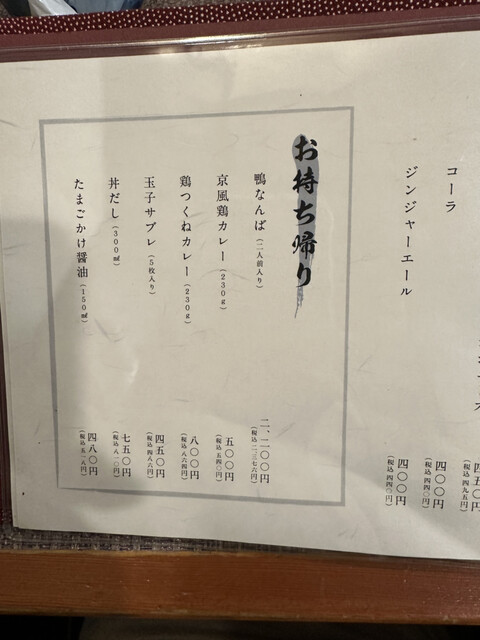 コーラ
四〇〇円
(税込 四四〇円)
ジンジャーエール
四〇〇円
(税込 四四〇円)
四五〇円
(税込 四九五円)
お持ち帰り
鴨なんば(二人前入り)
二、二〇〇円
(税込 二、三七六円)
京風鶏カレー(230g)
五〇〇円
(税込 五四〇円)
鶏つくねカレー(230g)
八〇〇円
(税込 八六四円)
玉子サブレ(5枚入り)
四五〇円
(税込 四八六円)
丼だし(300㎖)
七五〇円
(税込 八一〇円)
たまごかけ醤油(150㎖)
四八〇円
(税込 五一八円)